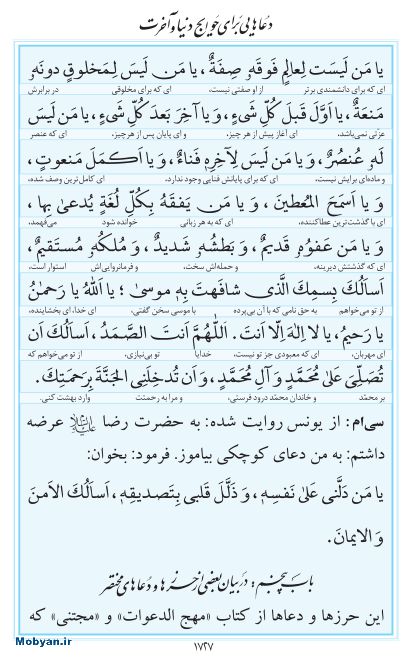 دعاهایی برای حوایج دنیا و آخرت
یا مَن لَیسَت لِعالِمٍ فَوقَهُ صِفَةٌ، یا مَن لَیسَ لِمَخلوقٍ دونَهُ
ای که برای دانشمندی برتر از او صفتی نیست، ای که برای مخلوقی در برابرش
مَنَعَةٌ، یا اَوَّلَ قَبلَ کُلِّ شَیءٍ، وَ یا آخِرَ بَعدَ کُلِّ شَیءٍ، یا مَن لَیسَ
عزّتی نمی‌باشد، ای آغاز پیش از هر چیز، و ای پایان پس از هرچیز، ای که عنصر
لَهُ عُنصُرٌ، وَ یا مَن لَیسَ لِآخِرِهِ فَناءٌ، وَ یا اَکمَلَ مَنعوتٍ،
و ماده‌ای برایش نیست، ای که برای پایانش فنایی وجود ندارد، ای کامل‌ترین وصف شده،
وَ یا اَسمَحَ المُعطینَ، وَ یا مَن یَفقَهُ بِکُلِّ لُغَةٍ یُدعیٰ بِها،
ای با گذشت‌ترین عطاکننده، ای که به هر زبانی خوانده شود می‌فهمد،
وَ یا مَن عَفوُهُ قَدیمٌ، وَ بَطشُهُ شَدیدٌ، وَ مُلکُهُ مُستَقیمٌ،
ای که گذشتش دیرینه، و حمله‌اش سخت، و فرمانروایی‌اش استوار است،
اَسأَلُکَ بِسمِکَ الَّذی شافَهتَ بِهِ موسیٰ؛ یا اَللهُ یا رَحمٰنُ
از تو می‌خواهم به حق نامی که با آن بی‌پرده با موسی سخن گفتی، ای خدا، ای بخشاینده،
یا رَحیمُ، یا لا اِلٰهَ اِلّا اَنتَ. اَللّٰهُمَّ اَنتَ الصَّمَدُ، اَسأَلُکَ اَن
ای مهربان، ای که معبودی جز تو نیست، خدایا تو بی‌نیازی، از تو می‌خواهم که
تُصَلِّیَ عَلیٰ مُحَمَّدٍ وَ آلِ مُحَمَّدٍ، وَ اَن تُدخِلَنِی الجَنَّةَ بِرَحمَتِکَ.
بر محمّد و خاندان محمّد درود فرستی، و مرا به رحمتت وارد بهشت کنی.
سی‌اُم: از یونس روایت شده: به حضرت رضا علیه‌السلام عرضه
داشتم: به من دعای کوچکی بیاموز. فرمود: بخوان:
یا مَن دَلَّنی عَلیٰ نَفسِهِ، وَ ذَلَّلَ قَلبی بِتَصدیقِهِ، اَسأَلُکَ الاَمنَ
وَ الایمانَ.
باب پنجم: در بیان بعضی از حرزها و دعاهای مختصر
این حرزها و دعاها از کتاب «مهج الدعوات» و «مجتنی» که
Mobyan.ir
۱۷۲۷